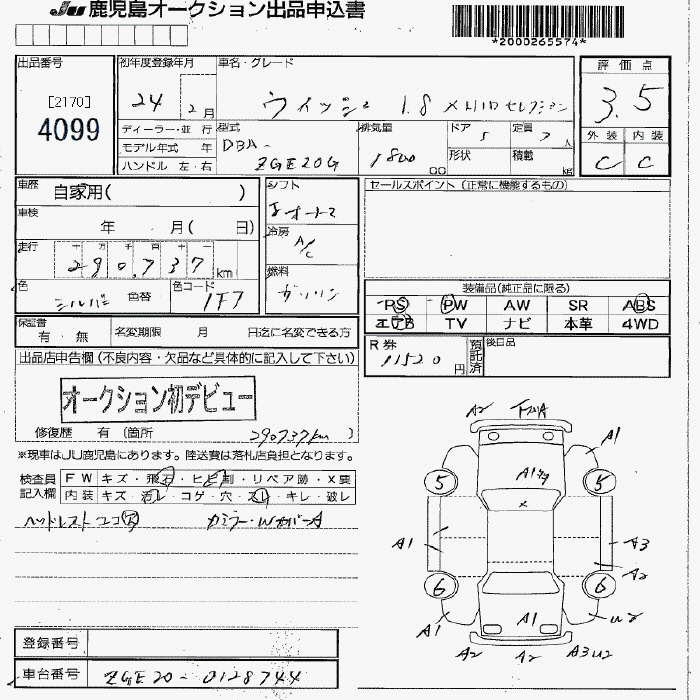 JU 鹿児島オークション出品申込書
*2000265574*
出品番号
[2170]
4099
初年度登録年月
24 2月
車名・グレード
ウィッシュ 1.8 Xメルロセレクション
評価点
3.5
外装 内装
C C
ディーラー・並行
モデル年式 年
ハンドル 左・右
型式
DBA-
ZGE20G
排気量
1800 CC
ドア 5
定員 7人
形状
積載 kg
車歴
自家用( )
シフト
車検
年 月( 日)
冷房
A/C
走行
十 万 千 百 十 一
290,737 km
燃料
ガソリン
色
シルバー 色替
色コード
1F7
セールスポイント (正常に機能するもの)
装備品(純正品に限る)
PS PW AW SR ABS
エアB TV ナビ 本革 4WD
保証書
有・無
名変期限 月 日迄に名変できる方
R券
11520 円
預託済
後日品
出品店申告欄(不良内容・欠品など具体的に記入して下さい)
オークション初デビュー
修復歴 有 (箇所 290737km )
※現車はJU鹿児島にあります。陸送費は落札店負担となります。
検査員
記入欄
FW キズ・飛石・ヒビ割・リペア跡・X要
内装 キズ・汚レ・コゲ・穴・スレ・キレ・破レ
ヘッドレスト ヨゴレ
A2
A1
5
A1
5
X
A1
A3
A2
6
6
A1
A1
U2
A2
A2
A3U2
登録番号
車台番号
ZGE20-0128744